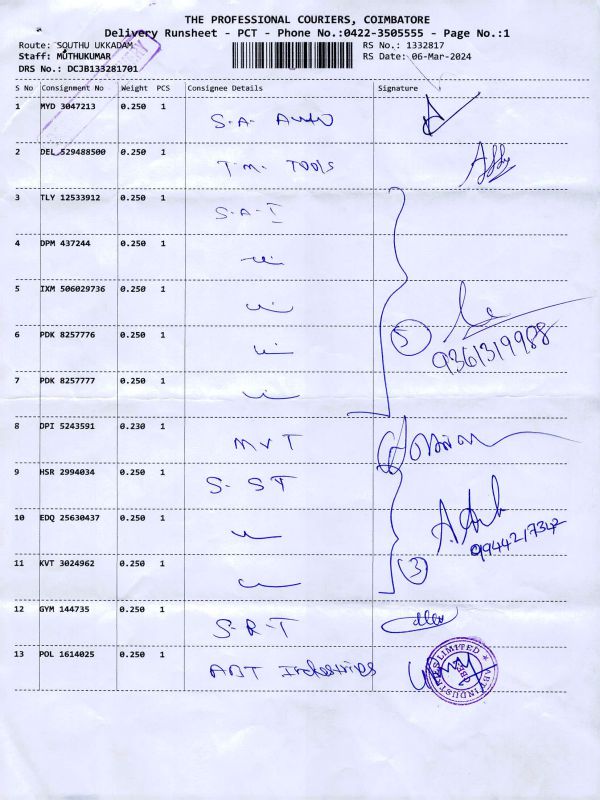 THE PROFESSIONAL COURIERS, COIMBATORE
Delivery Runsheet - PCT - Phone No.:0422-3505555 - Page No.:1
Route: SOUTHU UKKADAM RS No.: 1332817
Staff: MUTHUKUMAR RS Date: 06-Mar-2024
DRS No.: DCJB133281701
S No Consignment No Weight PCS Consignee Details Signature
1 MYD 3047213 0.250 1 S.A. Auto
2 DEL 529488500 0.250 1 T.M. Tools
3 TLY 12533912 0.250 1 S.A.I
4 DPM 437244 0.250 1
5 IXM 506029736 0.250 1
6 PDK 8257776 0.250 1 5
9361319988
7 PDK 8257777 0.250 1
8 DPI 5243591 0.230 1 MVT
9 HSR 2994034 0.250 1 S. ST
10 EDQ 25630437 0.250 1
9944217342
11 KVT 3024962 0.250 1 3
12 GYM 144735 0.250 1 S.R.T
13 POL 1614025 0.250 1 ABT Industries
ABT INDUSTRIES LIMITED